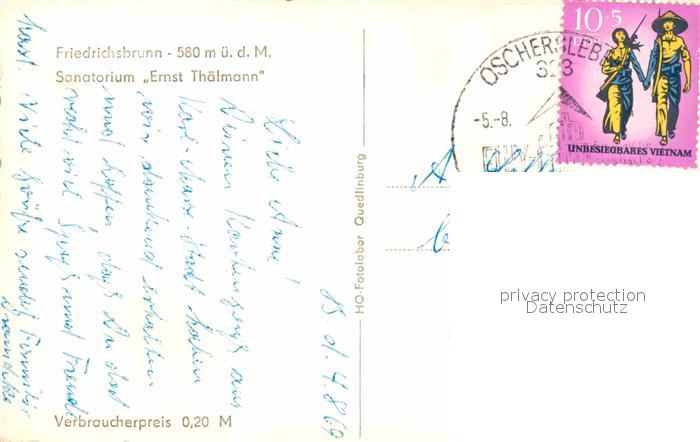 Friedrichsbrunn - 580 m ü. d. M.
Sanatorium „Ernst Thälmann"
B d. 4.8.69
Liebe Anne!
Deinen Kartengruß aus
Karl-Marx-Stadt haben
wir dankend erhalten
und hoffen, daß Du dort
recht viel Spaß und Freude
hast. Viele Grüße sendet Familie
Verbraucherpreis 0,20 M
HO-Fotolabor Quedlinburg
OSCHERSLEBE
323
-5.-8.
10+5
UNBESIEGBARES VIETNAM
privacy protection
Datenschutz